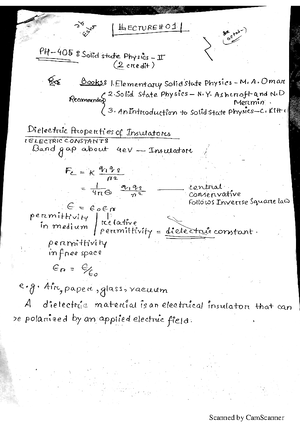 LECTURE # 01
PH-405 : Solid state Physics-II
(2 credit)
Books: 1. Elementary Solid State Physics - M.A. Omar
Recommended
2. Solid State Physics - N.Y. Ashcroft and N.D
Mermin
3. An introduction to Solid State Physics - C. Kitt
Dielectric Properties of Insulators
(DIELECTRIC CONSTANTS
Band gap about 4eV — Insulators
Fc = K q1 q2 / r2
= 1/4πε q1 q2 / r2 — central
conservative
follows Inverse Square law
ε = ε0 εr
permittivity in medium
relative permittivity = dielectric constant.
permittivity
in free space
εr = ε/ε0
e.g. Air, paper, glass, vacuum
A dielectric material is an electrical insulator that can
be polarized by an applied electric field.
Scanned by CamScanner